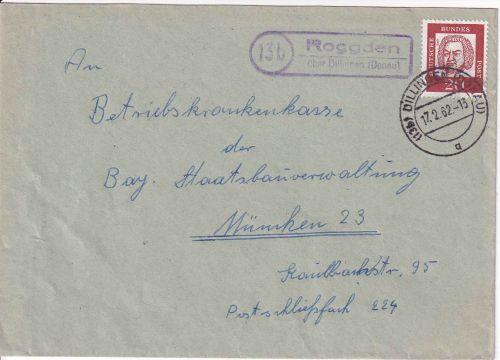 13b
Roggden
über Dillingen (Donau)
DEUTSCHE BUNDESPOST
20
(13b) DILLINGEN (DONAU)
17.2.62.-18
a
An
Betriebskrankenkasse
der
Bay. Staatsbauverwaltung
München 23
Kaulbachstr. 95
Postschließfach 224